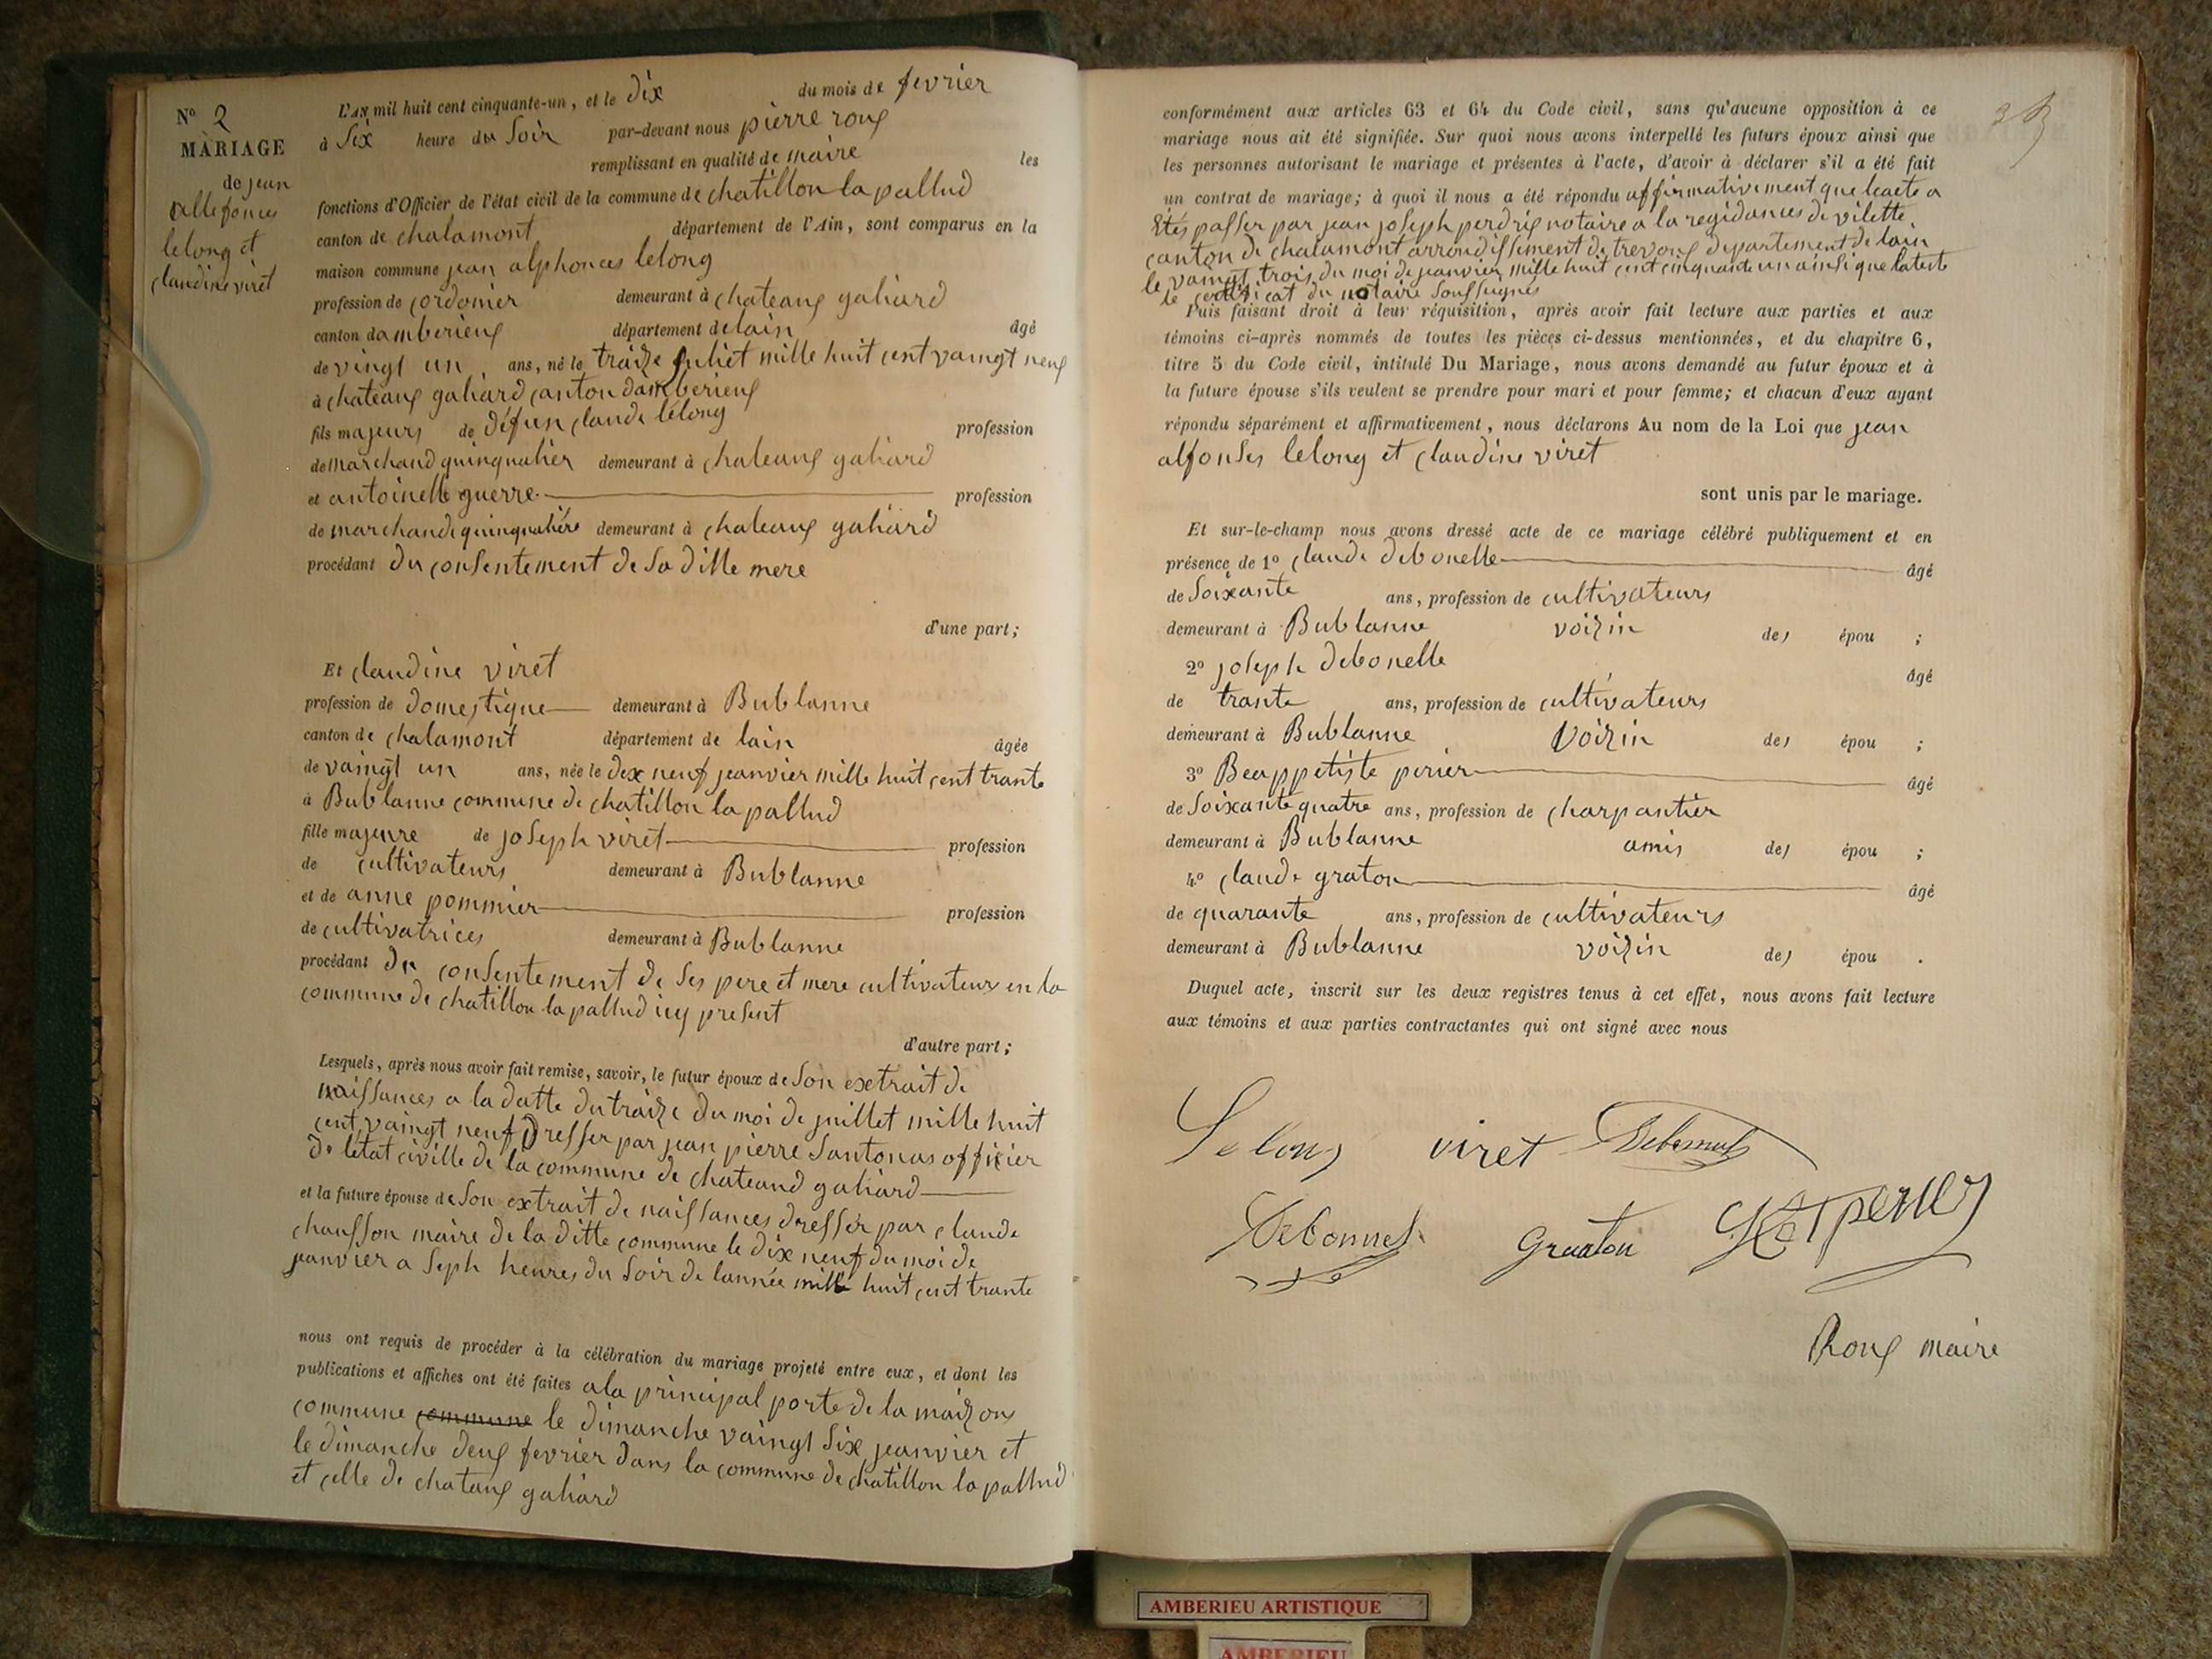 N° 2
MARIAGE
de jean
allefonces
lelong et
claudine viret
L'AN mil huit cent cinquante-un, et le dix du mois de fevrier
à Six heure du Soir par-devant nous pierre roux
remplissant en qualité de maire les
fonctions d'Officier de l'état civil de la commune de chatillon la pallud
canton de chalamont département de l'Ain, sont comparus en la
maison commune jean alphonces lelong
profession de cordonier demeurant à chateaux gahiard
canton damberieux département de lain âgé
de vingt un ans, né le traize juliet mille huit cent vaingt neuf
à chateaux gahiard canton damberieux
fils majeurs de défun claude lelong profession
de marchand quinquahier demeurant à chateaux gahiard
et antoinette guerre profession
de marchande quinquahiére demeurant à chateaux gahiard
procédant du consentement de Sa ditte mere
d'une part;
Et claudine viret
profession de domestique demeurant à Bublanne
canton de chalamont département de lain âgée
de vaingt un ans, née le dix neuf jeanvier mille huit cent trante
à Bublanne commune de chatillon la pallud
fille majeure de joseph viret profession
de cultivateurs demeurant à Bublanne
et de anne pommier profession
de cultivatrices demeurant à Bublanne
procédant du consentement de Ses pere et mere cultivateurs en la
commune de chatillon la pallud icy present
d'autre part;
Lesquels, après nous avoir fait remise, savoir, le futur époux de Son extrait de
naissances a la datte du traize du moi de juillet mille huit
cent vaingt neuf Dresser par jean pierre Santonas officier
de létat civille de la commune de chateaud gahiard
et la future épouse de Son extrait de naissances dresser par claude
chausson maire de la ditte commune le dix neuf du moi de
janvier a Seph heures du Soir de lannée mille huit cent trante
nous ont requis de procéder à la célébration du mariage projeté entre eux, et dont les
publications et affiches ont été faites a la principal porte de la maizons
commune commune le dimanche vaingt Six jeanvier et
le dimanche deux fevrier dans la commune de chatillon la pallud
et celle de chataux gahiard
conformément aux articles 63 et 64 du Code civil, sans qu'aucune opposition à ce
mariage nous ait été signifiée. Sur quoi nous avons interpellé les futurs époux ainsi que
les personnes autorisant le mariage et présentes à l'acte, d'avoir à déclarer s'il a été fait
un contrat de mariage; à quoi il nous a été répondu affirmativement que lacte a
Étés passer par jean joseph perdrix notaire a la rezidances de vilette
canton de chalamont arrondissement de trevoux departement de lain
le vaingt trois du moi de jeanvier mille huit cent cinquante un ainsi que lateste
le certificat du notaire Soussignés
Puis faisant droit à leur réquisition, après avoir fait lecture aux parties et aux
témoins ci-après nommés de toutes les pièces ci-dessus mentionnées, et du chapitre 6,
titre 5 du Code civil, intitulé Du Mariage, nous avons demandé au futur époux et à
la future épouse s'ils veulent se prendre pour mari et pour femme; et chacun d'eux ayant
répondu séparément et affirmativement, nous déclarons Au nom de la Loi que jean
alfonses lelong et claudine viret
sont unis par le mariage.
Et sur-le-champ nous avons dressé acte de ce mariage célébré publiquement et en
présence de 1° claude debonelle âgé
de Soixante ans, profession de cultivateurs
demeurant à Bublanne voizin des épou ;
2° joseph debonelle âgé
de trante ans, profession de cultivateurs
demeurant à Bublanne Voizin des épou ;
3° Beappetiste perier âgé
de Soixante quatre ans, profession de charpantier
demeurant à Bublanne amis des épou ;
4° claude graton âgé
de quarante ans, profession de cultivateurs
demeurant à Bublanne voizin des épou .
Duquel acte, inscrit sur les deux registres tenus à cet effet, nous avons fait lecture
aux témoins et aux parties contractantes qui ont signé avec nous
Lelong viret
Debonnel Graton perier
Roux maire
AMBERIEU ARTISTIQUE
AMBERIEU